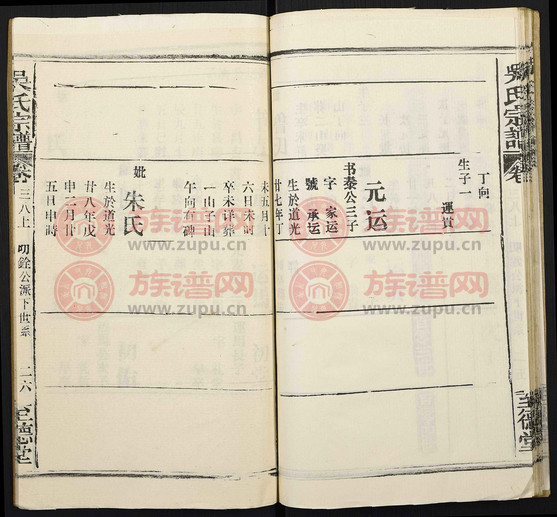 吳氏宗譜
卷
至德堂
丁向
生子一
運貫
元运
书秦公三子
字 家运
號 承运
生於道光
廿七年丁
未五月廿
六日未时
卒未详葬
一山子山
午向有碑
妣 朱氏
生於道光
廿八年戊
申二月廿
五日申時
吳氏宗譜
卷三八上
明銓公派下世系
二六
至德堂
族谱网
www.zupu.cn
族谱网
www.zupu.cn
族谱网
www.zupu.cn
族谱网
www.zupu.cn
族谱网
www.zupu.cn
族谱网
www.zupu.cn